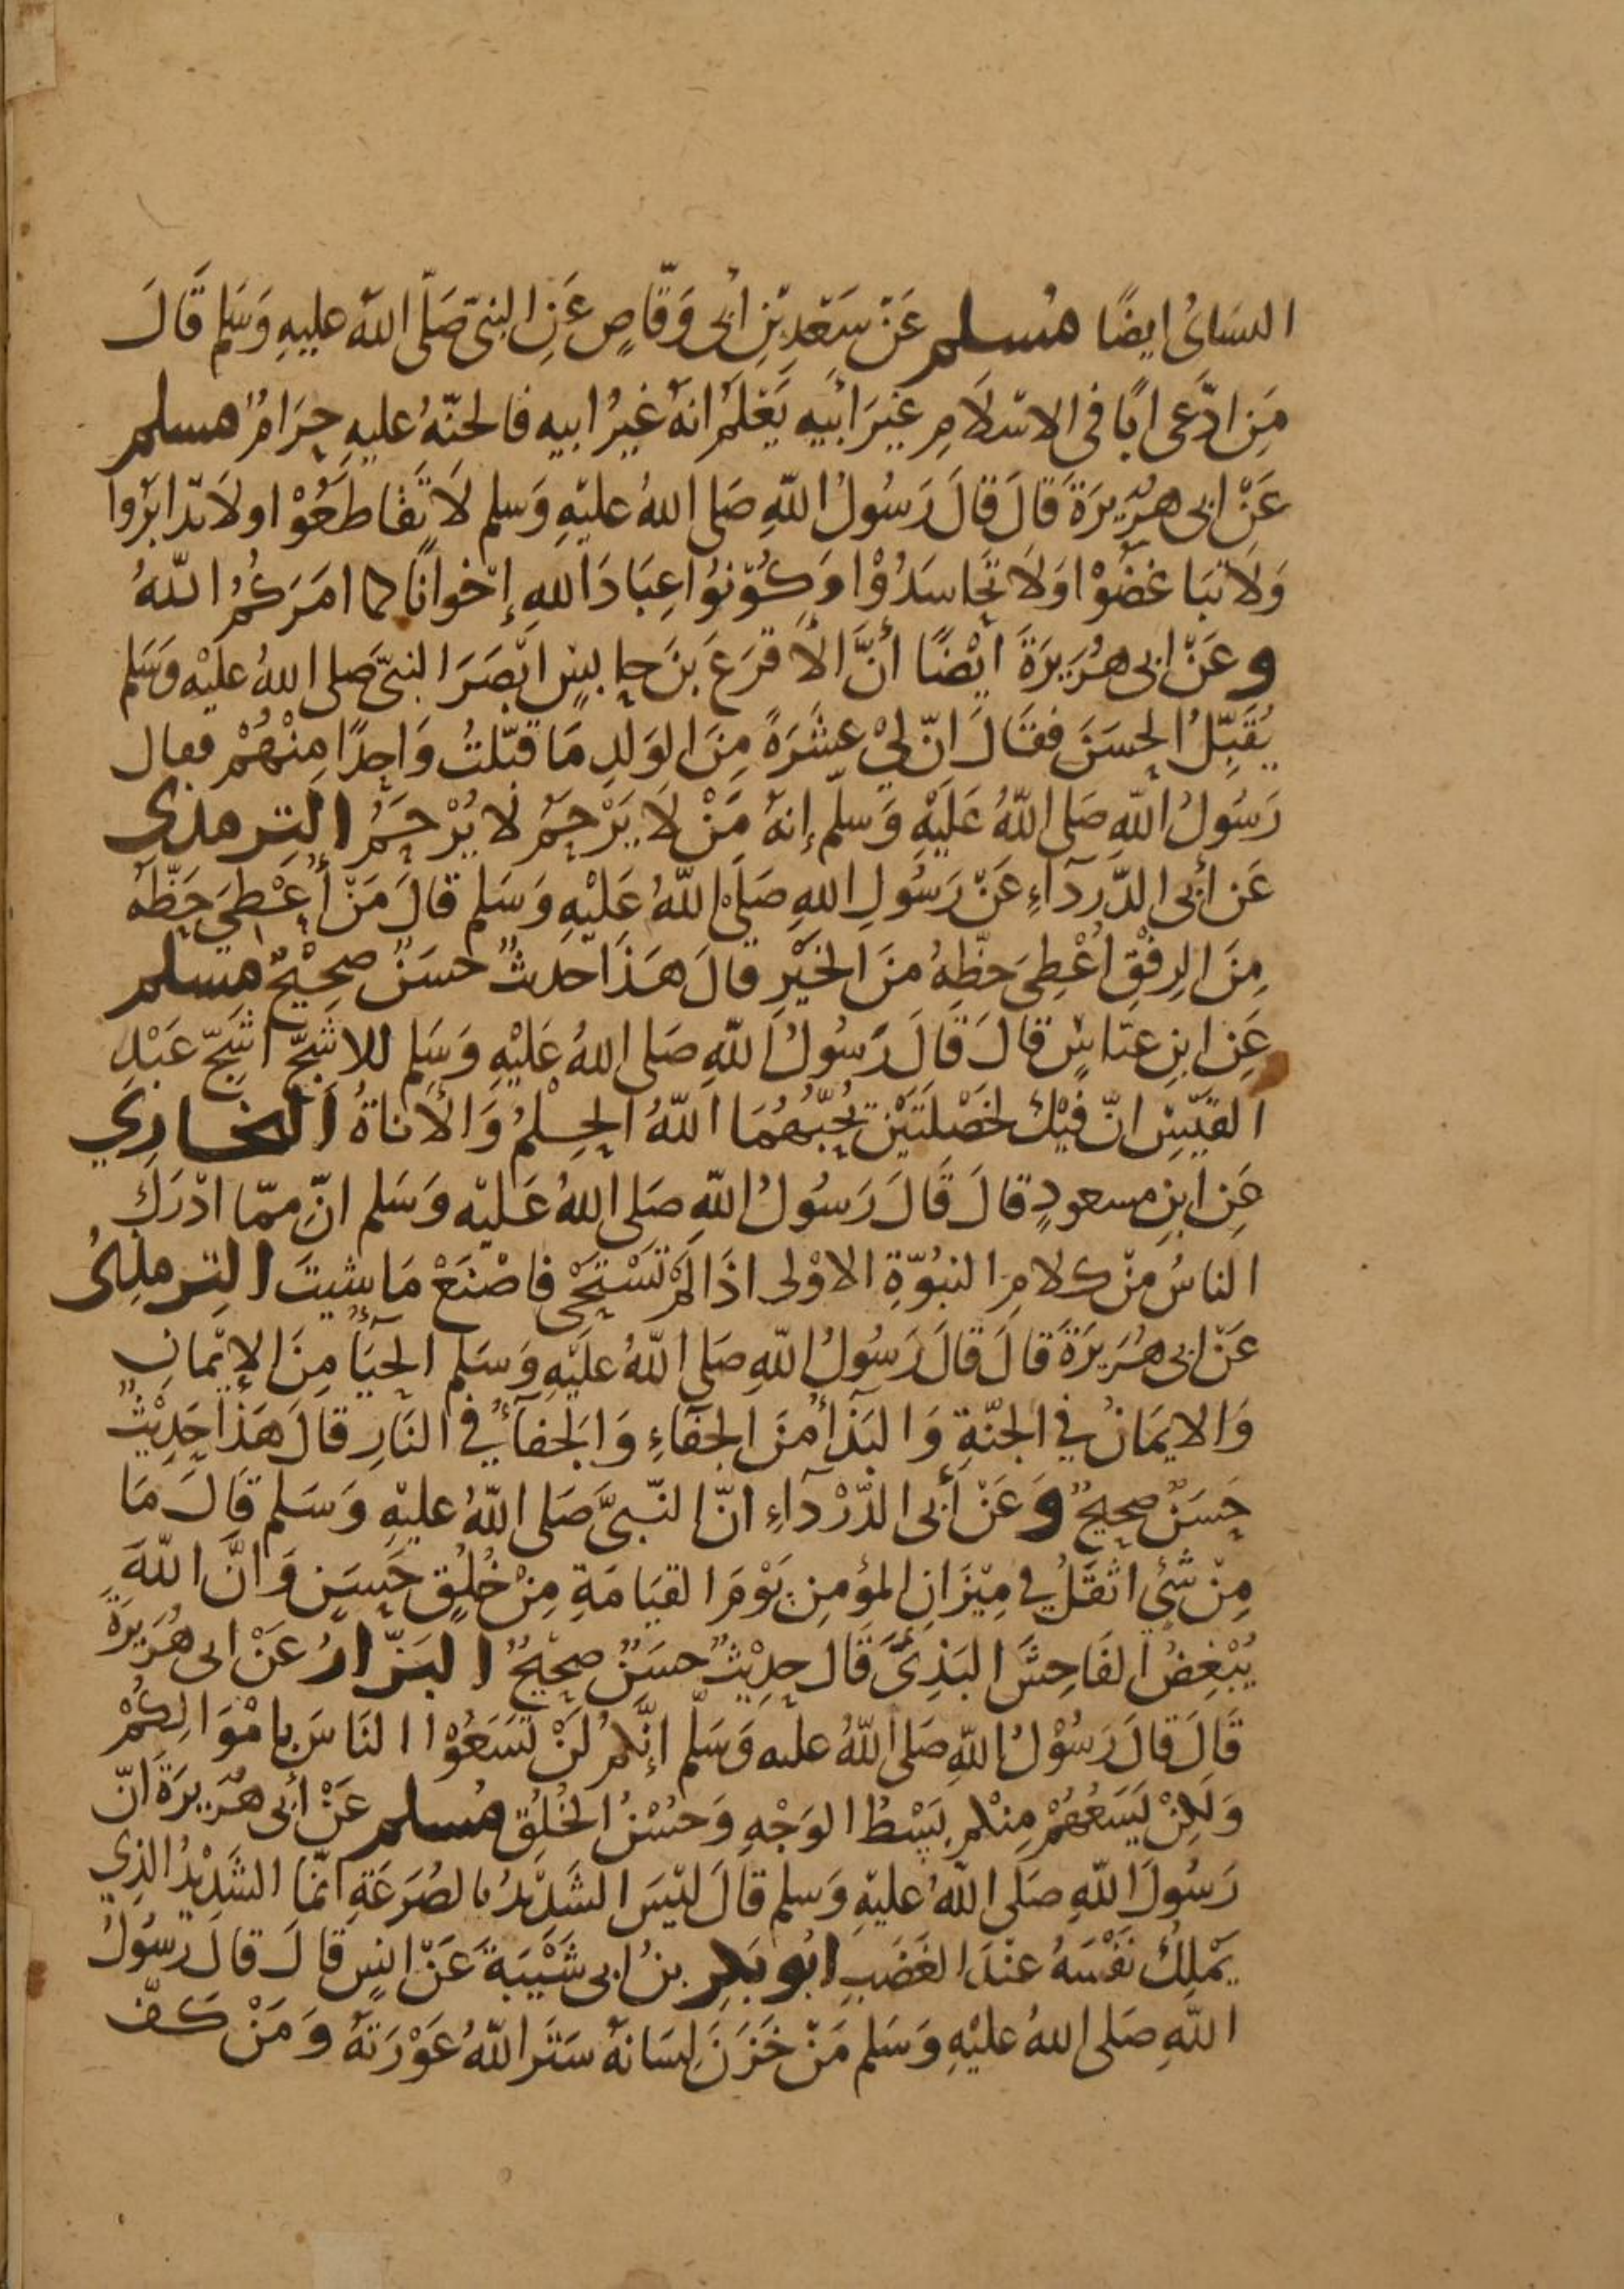 النسائى ايضًا مُسلم عَنْ سَعْدِ بْنِ أبى وَقّاصٍ عَنِ النبىّ صَلّى اللهُ عليهِ وَسَلم قَالَ
مَنِ ادَّعى ابًا فى الاسْلَامِ غيرَ ابيهِ يَعْلَمُ انهُ غيرُ ابيه فالجنّةُ عليهِ حَرَامٌ مسلم
عَنْ ابى هُرَيرَةَ قَالَ قَالَ رَسُولُ اللهِ صَلى اللهُ عليْهِ وَسلم لَا تَقَاطَعُوْا ولَا تدَابَرُوا
وَلَا تبَاغَضُوْا وَلَا تحَاسَدُوْا وَكُوْنوُا عِبَادَ اللهِ إخْوانًا كما امَرَكُمُ اللهُ
وعَنْ ابى هُرَيرَةَ ايْضًا أنَّ الأَقرَعَ بنَ حابسٍ ابْصَرَ النبىّ صلى اللهُ عليْهِ وَسَلم
يُقَبِّلُ الحسَنَ فقَالَ انّ لِيْ عَشَرَةً مِنَ الوَلدِ مَا قبّلتُ وَاحِدًا مِنْهُمْ فقال
رَسُولُ اللهِ صَلى اللهُ عَلَيْهِ وَسَلّم إنهُ مَنْ لَا يَرْحَمْ لا يُرْحَمْ الترمذى
عَن أبى الدَّردَآءِ عَنْ رَسُولِ اللهِ صَلىَ اللهُ عَليْهِ وَسَلم قالَ مَنْ أُعْطِيَ حَظّهُ
مِنَ الرِفْقِ اُعْطِىَ حظّهُ منَ الخَيْرِ قالَ هَذَا حَديثٌ حسَنٌ صحِيْحٌ مسلم
عَنِ ابنِ عبّاسٍ قالَ قَالَ رَسُولُ اللهِ صَلى اللهُ عَليْهِ وَسَلم للاشَجّ اشَجّ عَبْدِ
القَيْسِ انّ فيْكَ لخَصْلَتَيْنِ يُحِبُّهُمَا اللهُ الحِلْمُ وَالأنَاةُ البخَارِي
عَنِ ابنِ مسعودٍ قالَ قَالَ رَسُولُ اللهِ صَلى اللهُ عَليْه وَسَلم انّ مِمّا ادْرَكَ
الناسُ مِنْ كلامِ النبُوّةِ الاوْلى اذَا لَمْ تَسْتَحْى فاصْنَعْ مَا شيتَ الترمذىُ
عَنْ ابى هُرَيرَةَ قَالَ قَالَ رَسُولُ اللهِ صَلى اللهُ عليْهِ وَسَلم الحَيَآءُ مِنَ الإيْمَانِ
وَالايمَانُ في الجنّةِ وَالبَذَآءُ منَ الجفَآءِ وَالجَفَآءُ في النَارِ قالَ هَذَا حَدِيْثٌ
حَسَنٌ صحيحٌ وَعَنْ أبى الدّرْدَآءِ انّ النّبىَّ صَلى اللهُ عليْهِ وَسَلم قَالَ مَا
مِنْ شَيْءٍ اثقَلُ في مِيْزَانِ المؤمِنِ يَوْمَ القيَامَةِ مِنْ خُلُقٍ حَسَنٍ وَانَّ اللهَ
يُبْغِضُ الفَاحِشَ البَذِىَّ قَال حديْثٌ حسَنٌ صحِيْحٌ البَزّارُ عَنْ ابى هُرَيرَةَ
قَالَ قَالَ رَسُوْلُ اللهِ صَلى اللهُ عليه وَسَلّم إنَّكمْ لَنْ تَسَعُوْا النَاسَ بِامْوَالِكُمْ
وَلكِنْ لِيَسَعْهُمْ مِنْكم بَسْطُ الوَجْهِ وَحُسْنُ الخُلُقِ مُسلم عَنْ أبى هُرَيرَةَ انّ
رَسُولَ اللهِ صَلى اللهُ عليْهِ وَسلم قَالَ ليْسَ الشَدِيْدُ بالصُرَعَةِ انّمَا الشَدِيْدُ الذِي
يَمْلِكُ نَفْسَهُ عنْدَ الغَضَبِ ابُو بَكرِ بنُ ابى شَيْبَةَ عَنْ انسٍ قَالَ قالَ رَسُوْلُ
اللهِ صَلى اللهُ عليْهِ وَسَلم مَنْ خَزَنَ لِسَانهُ سَتَرَ اللهُ عَوْرَتهُ وَمَنْ كَفّ